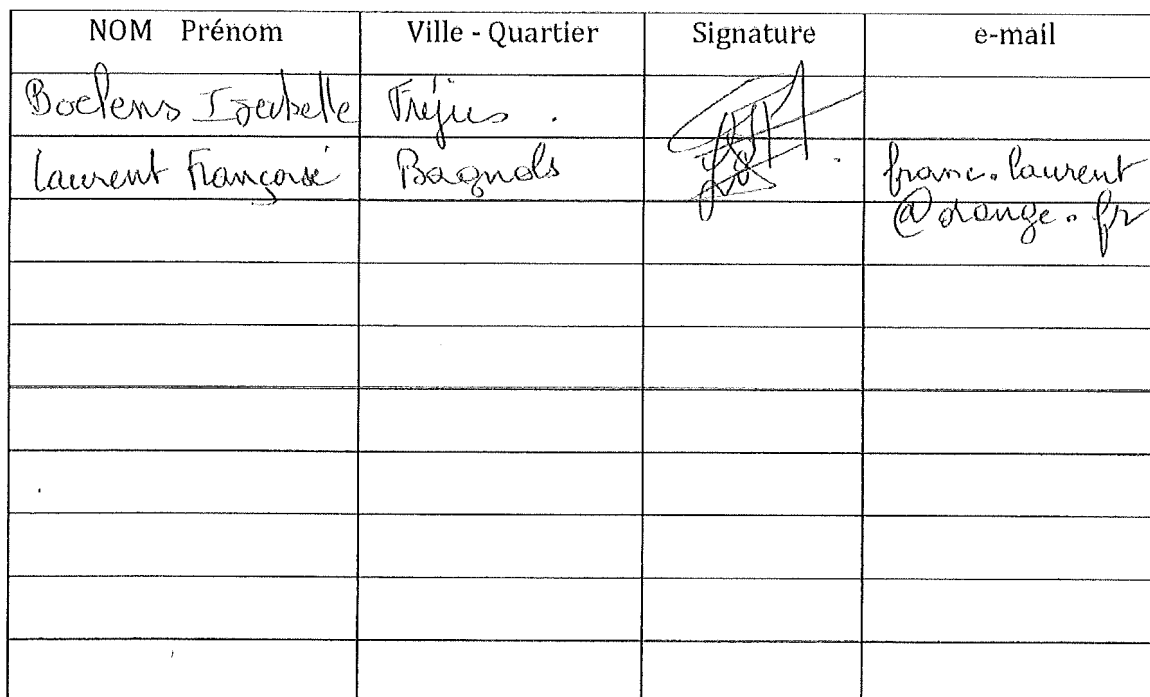 NOM Prénom Ville - Quartier Signature e-mail
Boelens Isabelle Fréjus .
Laurent Françoise Bagnols franc.laurent
@orange.fr